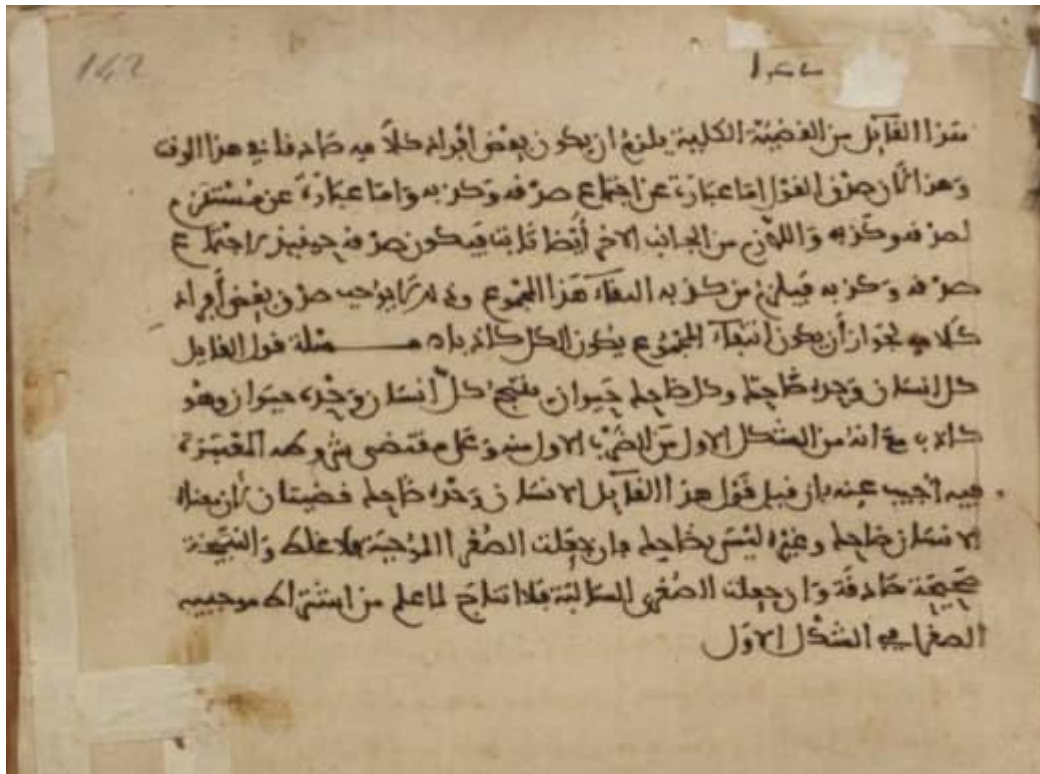 142
هذا القايل من القضية الكلية يلزم ان يكون بعض أفراد كلامه صادقا في هذا الوقت
وهذا لان صدق القول اما عبارة عن اجتماع صدقه وكذبه واما عبارة عن مستلزم
لصدقه وكذبه واللازم من الجانب الاخر أيضا ثابت فيكون صدقه حينيذ اجتماع
صدقه وكذبه فيلزم من كذبه انتفاء هذا المجموع وذلك لا يوجب صدق بعض أفراد
كلامه لجواز أن يكون انتفاء المجموع بكون الكل كاذبا مسئلة قول القايل
كل انسان وحده ضاحك وكل ضاحك حيوان ينتج كل انسان وحده حيوان وهو
كاذب مع انه من الشكل الاول من الضرب الاول منه وعلى مقتضى شروطه المعتبرة
فيه أجيب عنه بان قيل قول هذا القايل الانسان وحده ضاحك قضيتان لان معناه
الانسان ضاحك وغيره ليس بضاحك فان جعلت الصغرا الموجبة فلا غلط والنتيجة
صحيحة صادقة وان جعلت الصغرى السالبة فلا انتاج لما علم من اشتراط موجبية
الصغرا في الشكل الاول